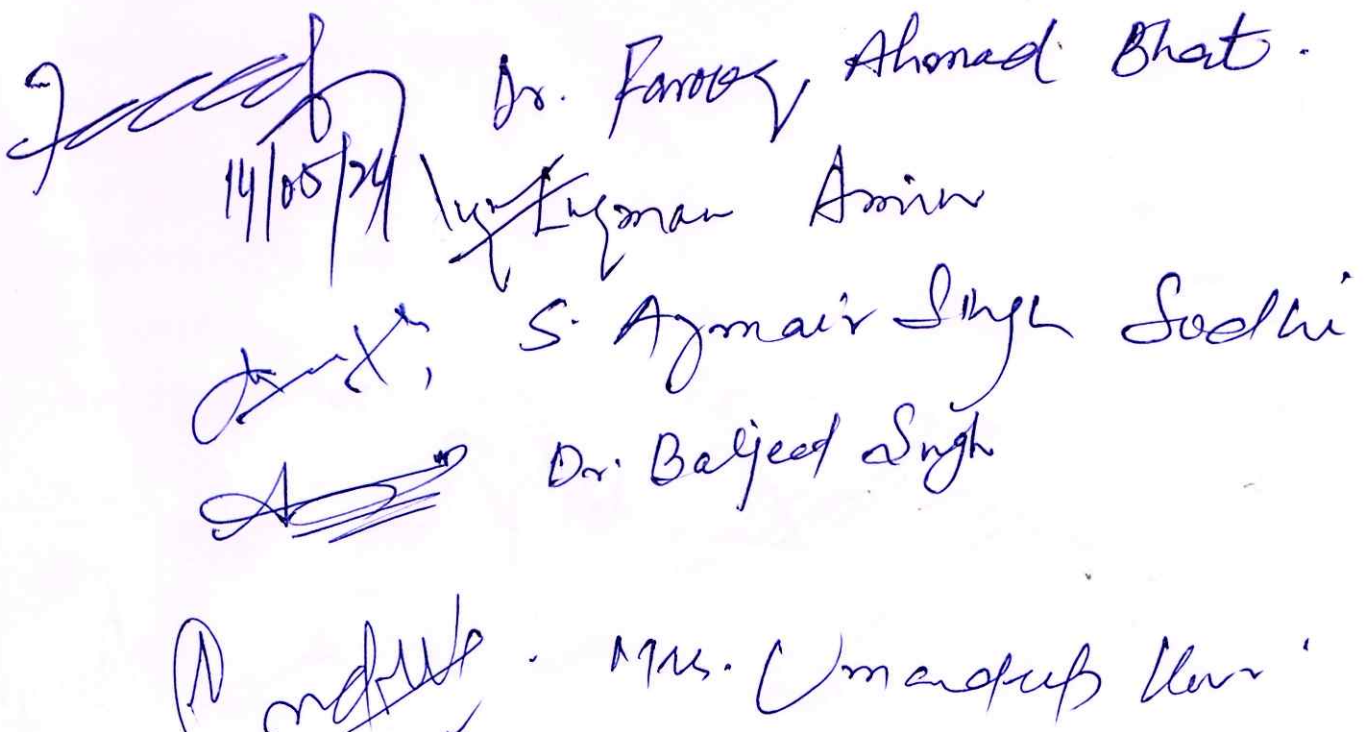 Dr. Farooq Ahmad Bhat.
14/05/24 Luqman Amin
S. Azmair Singh Sodhi
Dr. Baljeed Singh
Mrs. Umandeep Kour